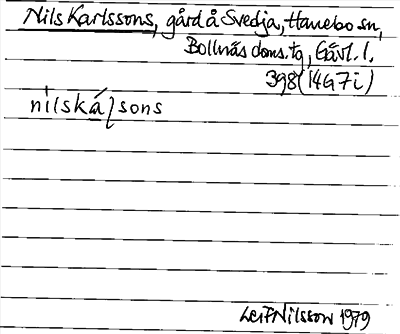 Nils Karlssons, gård å Svedja, Hanebo sn,
Bollnäs doms.tg, Gävl. l.
398 (14G7i)
nilskáɭsons
Leif Nilsson 1979